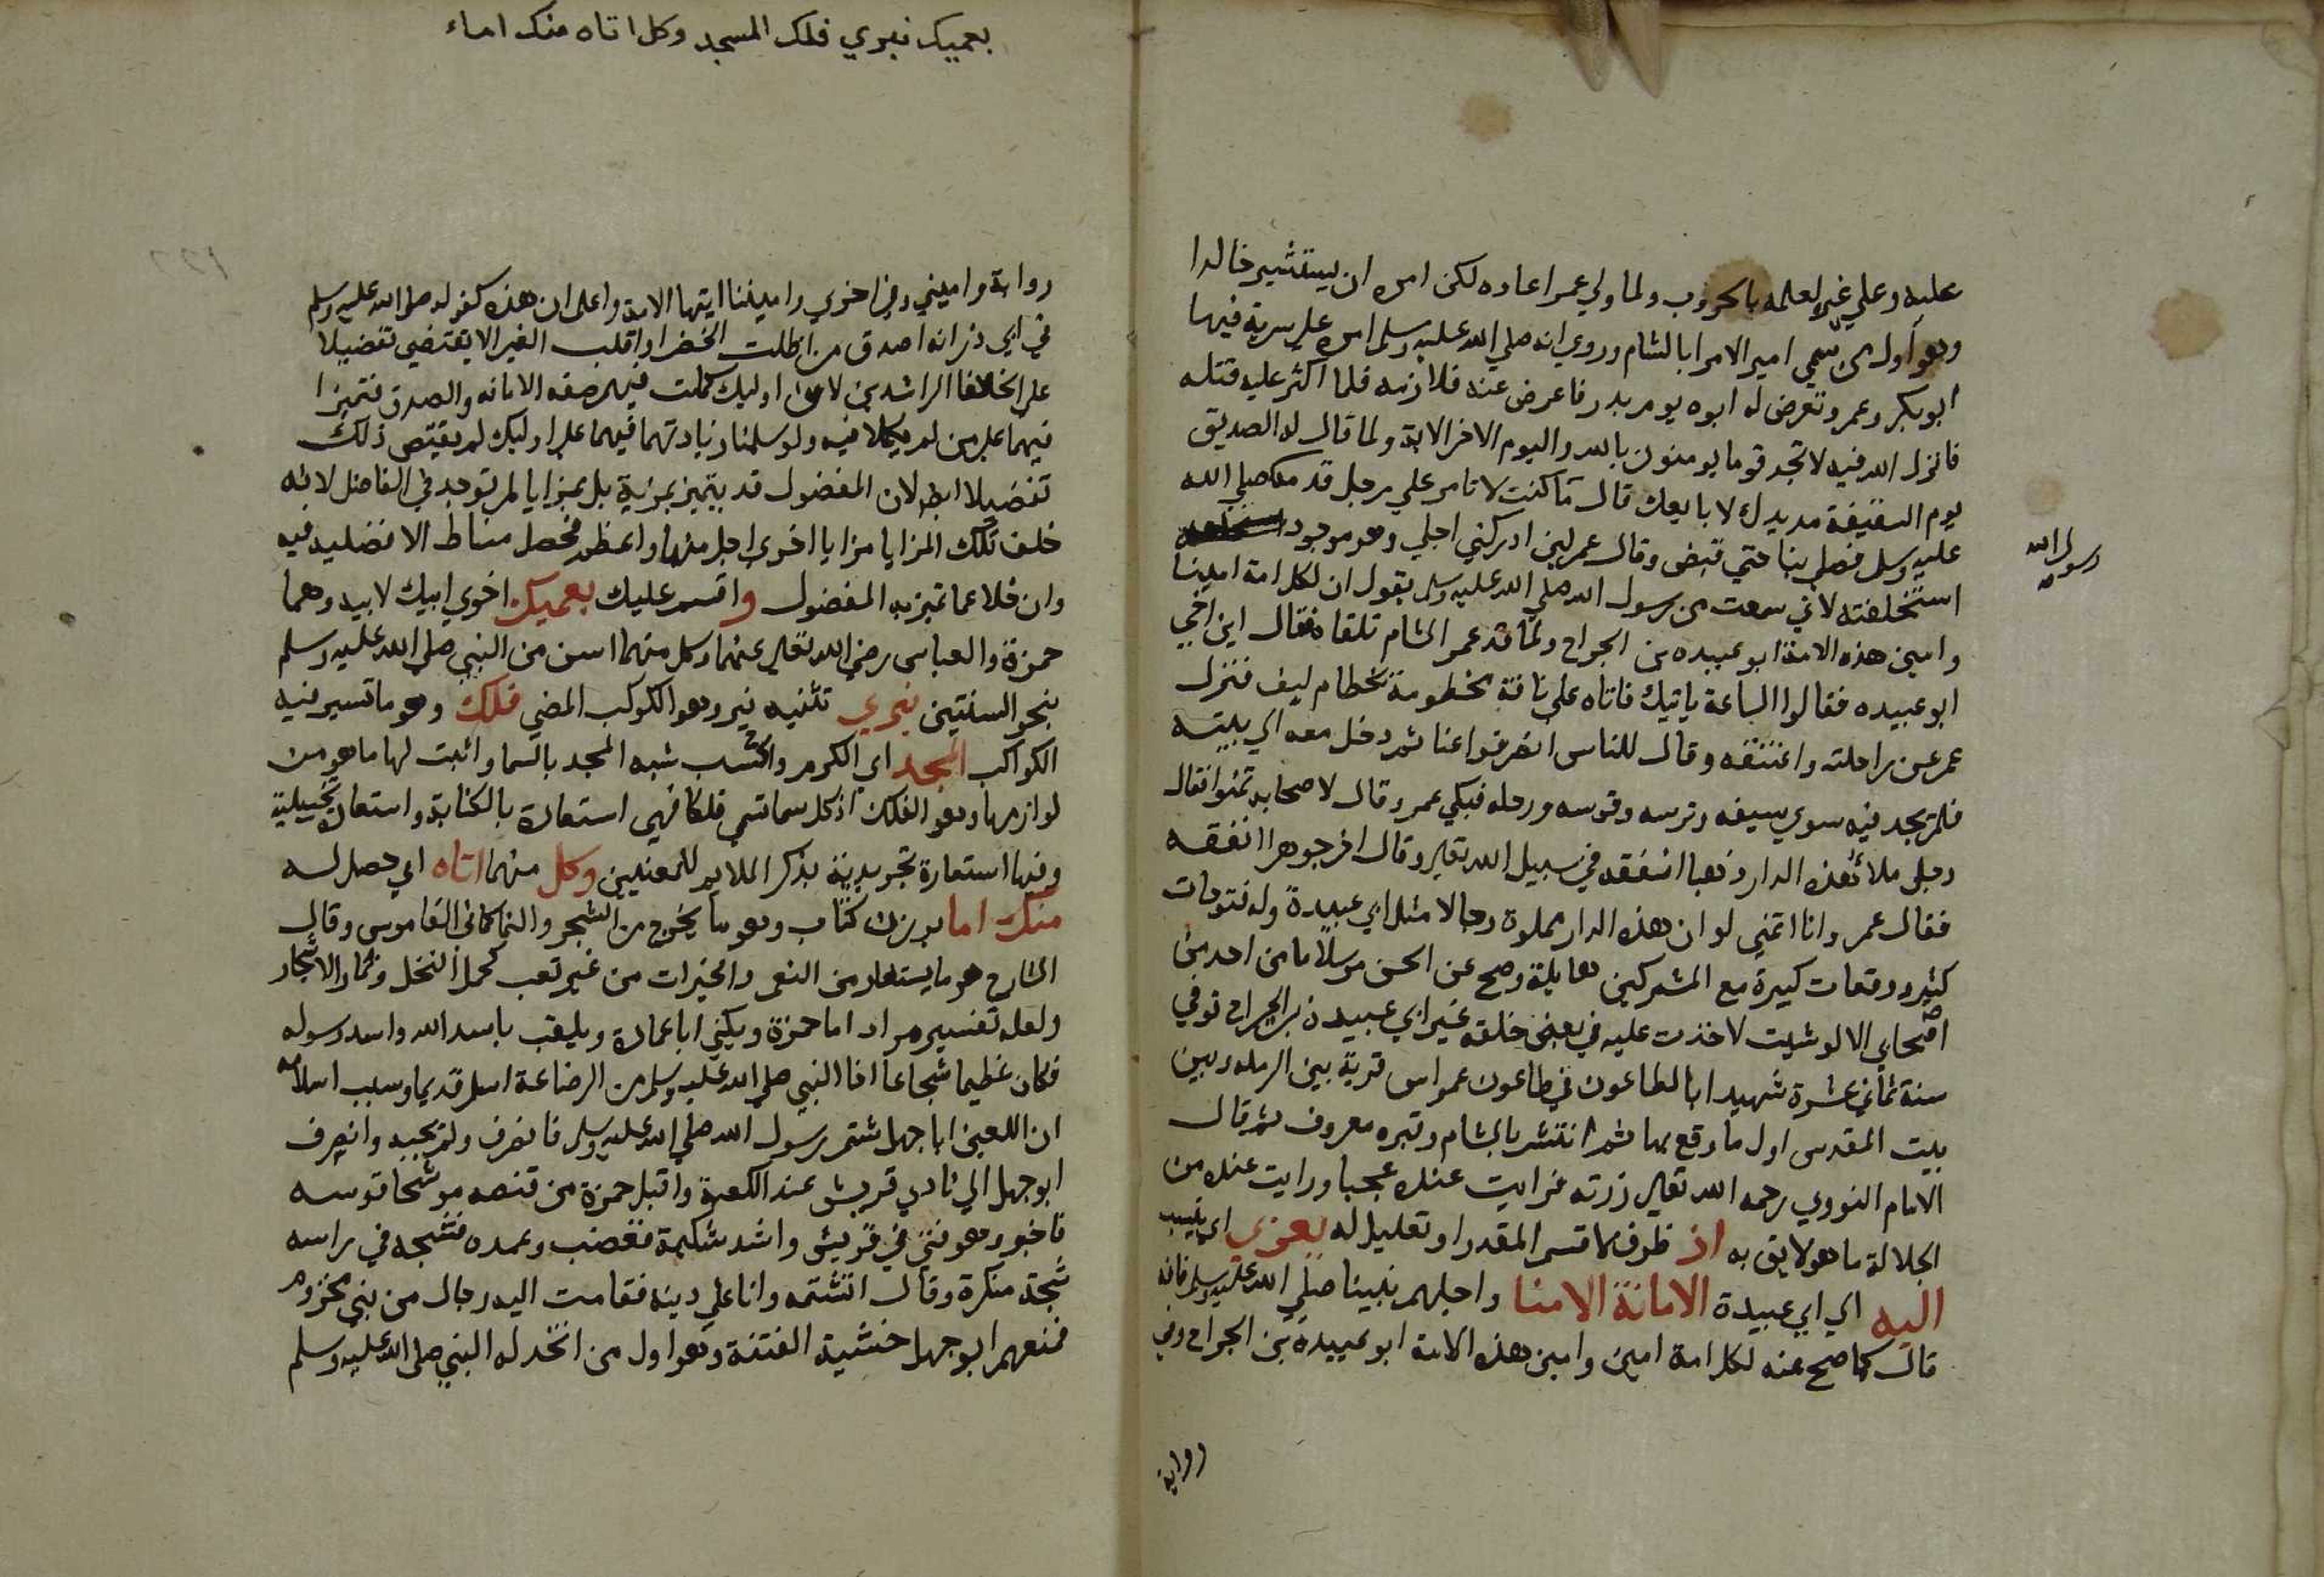 عليه وعلي غيره لعلمه بالحروب ولما ولي عمر اعاده لكن امره ان يستشير خالدا
وهو اول من سمي امير الامرا بالشام وروي انه صلي الله عليه وسلم امره علي سرية فيها
ابو بكر وعمر وتعرض له ابوه يوم بدر فاعرض عنه فلازمه فلما اكثر عليه قتله
فانزل الله فيه لا تجد قوما يومنون بالله واليوم الاخر الاية ولما قال له الصديق
يوم السقيفة مد يدك لابايعك قال ما كنت لاتامر علي رجل قدمه صلي الله
عليه وسلم فصلي بنا حتي قبض وقال عمر لين ادركني اجلي وهو موجود
رسول الله
استخلفته لاني سمعت من رسول الله صلي الله عليه وسلم يقول ان لكل امة امينا
وامين هذه الامة ابو عبيده بن الجراح ولما قدم عمر الشام تلقاه فقال اين اخي
ابو عبيده فقالوا الساعة ياتيك فاتاه علي ناقة مخطومة بخطام ليف فنزل
عمر عن راحلته واعتنقه وقال للناس انصرفوا عنا ثم دخل معه الي بيته
فلم يجد فيه سوي سيفه وترسه وقوسه ورحله فبكي عمر وقال لاصحابه تمنوا فقال
رجل ملا هذه الدار ذهبا انفقه في سبيل الله تعالي وقال اخر جوهرا انفقه
فقال عمر وانا اتمني لو ان هذه الدار مملوة رجالا مثل ابي عبيدة وله فتوحات
كثيره ووقعات كبيرة مع المشركين هايلة وصح عن الحسن مرسلا ما من احد من
اصحابي الا لو شيت لاخذت عليه في بعض خلقه غير ابي عبيده بن الجراح توفي
سنة ثماني عشرة شهيدا بالطاعون في طاعون عمواس قرية بين الرمله وبين
بيت المقدس اول ما وقع بها ثم انتشر بالشام وقبره معروف ثم قال
الامام النووي رحمه الله تعالي زرته فرايت عنده عجبا ورايت عنده من
الجلالة ما هو لايق به اذ ظرف لاقسم المقدر او تعليل له يعزي اي ينسب
اليه اي ابي عبيدة الامانة الامنا واجلهم نبينا صلي الله عليه وسلم فانه
قال كما صح عنه لكل امة امين وامين هذه الامة ابو عبيدة بن الجراح وفي
رواية
بعميك نيري فلك المجد وكل اتاه منك اماء
رواية واميني وفي اخري واميننا ايتها الامة واعلم ان هذه كقوله صلي الله عليه وسلم
في ابي ذر انه اصدق من اظلت الخضرا واقلت الغبرا لا يقتضي تفضيلا
علي الخلفا الراشدين لان اوليك كملت فيهم صفة الامانه والصدق فتميزا
فيهما علي من لم يكملا فيه ولو سلمنا زيادتهما فيهما علي اوليك لم يقتض ذلك
تفضيلا ايضا لان المفضول قد يتميز بمزية بل بمزايا لم توجد في الفاضل لانه
خلف تلك المزايا مزايا اخري اجل منها واعظم فحصل مناط الافضليه فيه
وان خلا عما تميز به المفضول واقسم عليك بعميك اخوي ابيك لابيه وهما
حمزة والعباس رضي الله تعالي عنهما وكل منهما اسن من النبي صلي الله عليه وسلم
بنحو السنتين نيري تثنيه نير وهو الكوكب المضي فلك وهو ما تسير فيه
الكواكب المجد اي الكرم والحسب شبه المجد بالسما واثبت لها ما هو من
لوازمها وهو الفلك اذ كل سما تسمي فلكا فهي استعارة بالكناية واستعارة تخييلية
وفيها استعارة تجريدية بذكر الملايم للمعنيين وكل منهما اتاه اي حصل له
منك اما بوزن كتاب وهو ما يخرج من الشجر والنما كما في القاموس وقال
الشارح هو ما يستعار من النعم والخيرات من غير تعب كحمل النخل وثمار الاشجار
ولعله تفسير مراد اما حمزة ويكني ابا عمارة ويلقب باسد الله واسد رسوله
فكان عظيما شجاعا اخا النبي صلي الله عليه وسلم من الرضاعة اسلم قديما وسبب اسلامه
ان اللعين ابا جهل شتم رسول الله صلي الله عليه وسلم فانصرف ولم يجبه وانصرف
ابو جهل الي نادي قريش عند الكعبة واقبل حمزة من قنصه موشحا قوسه
فاخبر وهو فتي في قريش واشد شكيمة فغضب وعمده فشجه في راسه
شجة منكرة وقال اتشتمه وانا علي دينه فقامت اليه رجال من بني مخزوم
فمنعهم ابو جهل خشية الفتنة وهو اول من اتخذ له النبي صلي الله عليه وسلم